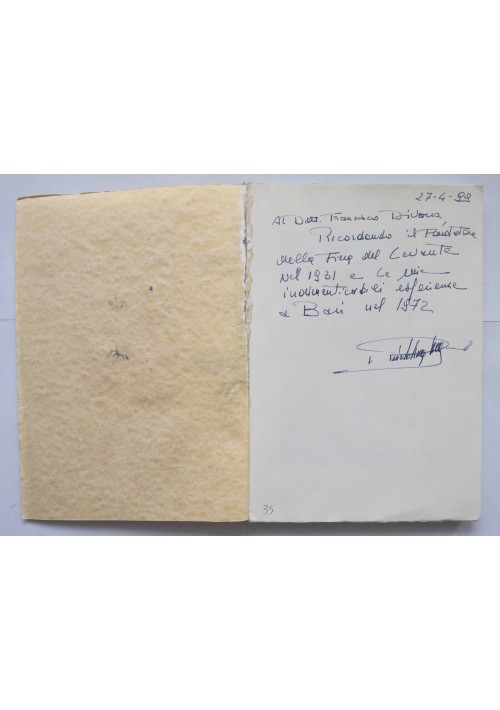 27-4-92
Al Dott. Francesco Divona,
Ricordando il Fondatore
della Fiera del Levante
nel 1931 e le mie
indimenticabili esperienze
a Bari nel 1972
35